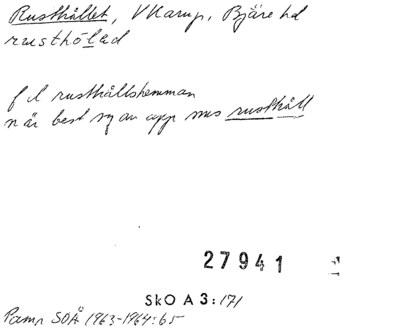 Rusthållet, V Karup, Bjäre hd
rusthôlad
f d rusthållshemman
när best sg av app mns rusthåll
27941
SkO A 3:171
Pamp SOÅ 1963-1964:65